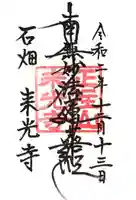 令和二年十二月十三日
南無妙法蓮華経
石畑 来光寺